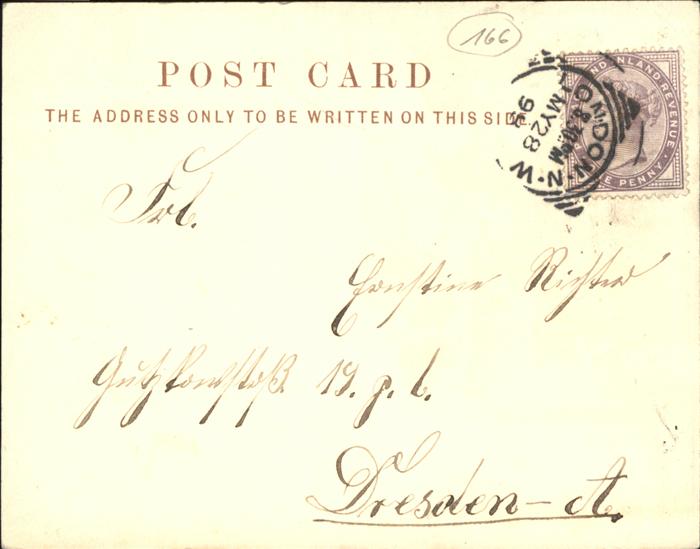 166
POST CARD
THE ADDRESS ONLY TO BE WRITTEN ON THIS SIDE.
POSTAGE AND INLAND REVENUE
ONE PENNY
LONDON·N·W
8.30PM
MY 28
98
Frl.
Ernstine Richter
Gutzkowstraß. 19. p. l.
Dresden - A.